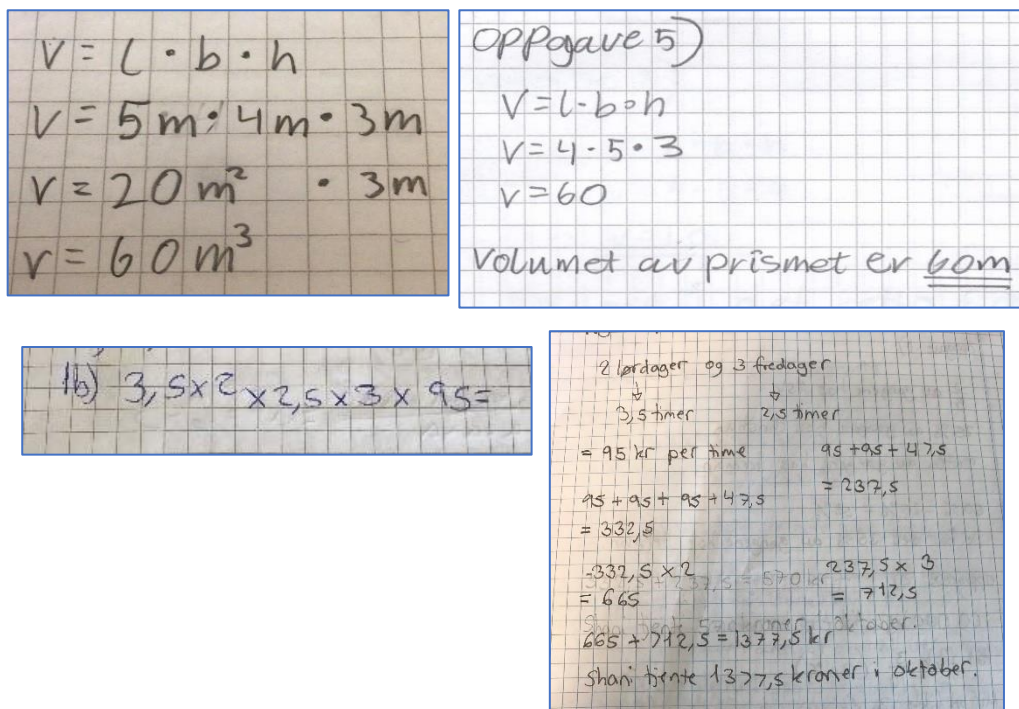 V = l · b · h
V = 5m · 4m · 3m
V = 20 m² · 3m
V = 60 m³
Oppgave 5)
V = l · b · h
V = 4 · 5 · 3
V = 60
Volumet av prismet er 60m
1b) 3,5 x 2 x 2,5 x 3 x 95 =
2 lørdager og 3 fredager
3,5 timer 2,5 timer
= 95 kr per time 95 + 95 + 47,5
= 237,5
95 + 95 + 95 + 47,5
= 332,5
332,5 x 2 237,5 x 3
= 665 = 712,5
665 + 712,5 = 1377,5 kr
Shani tjente 1377,5 kroner i oktober.